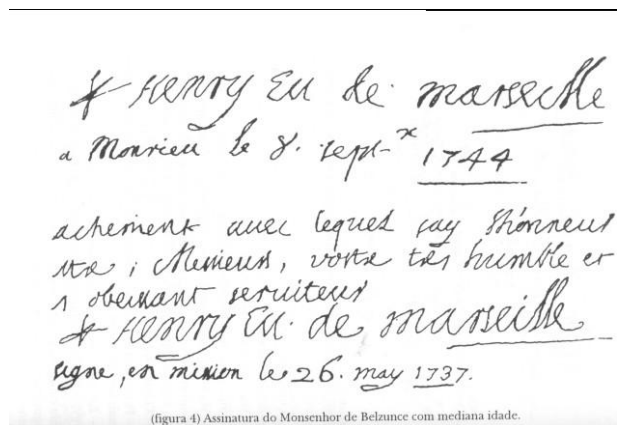 + Henry Ev de marseille
a Monsieu le 8. sept-x 1744
achement avec lequel jay l'honneur
etre, Messieurs, votre tres humble et
s obeissant serviteur
+ Henry Ev. de marseille
signe, en mission le 26. may 1737.
(figura 4) Assinatura do Monsenhor de Belzunce com mediana idade.